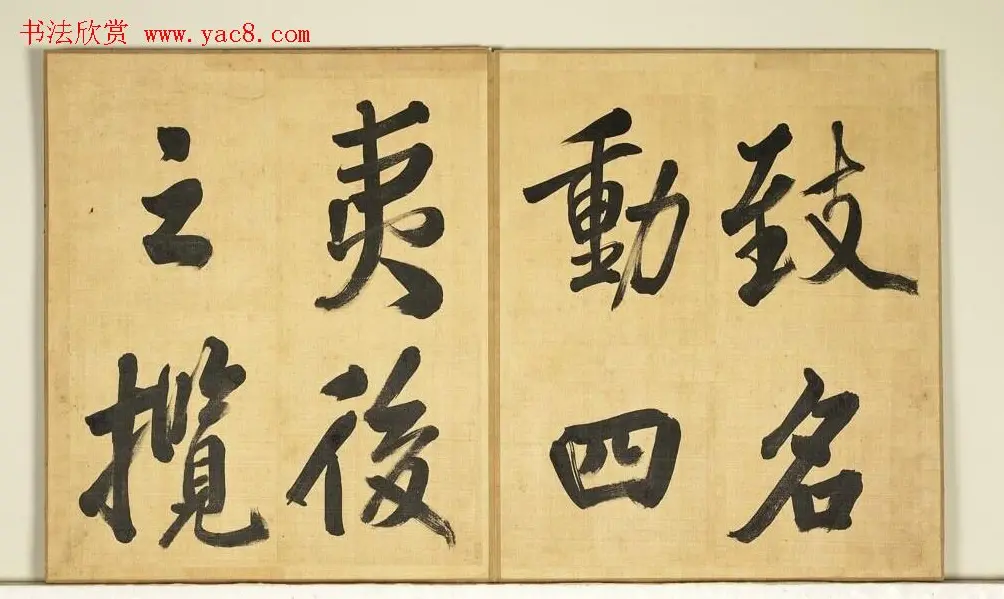 书法欣赏 www.yac8.com
致名
動四
夷後
之攬